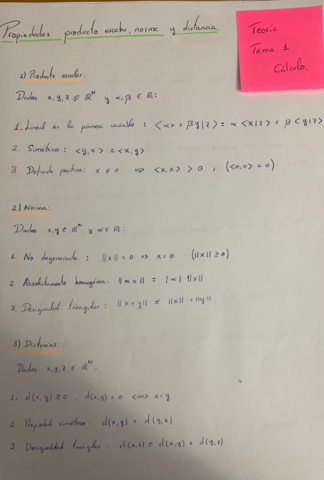 Propiedades producto escalar, norma y distancia.
Teoría
Tema 1
Cálculo.
1) Producto escalar:
Dados x,y,z ∈ ℝᴺ y α,β ∈ ℝ:
1. Lineal en la primera variable: <αx + βy|z> = α<x|z> + β<y|z>
2. Simétrico: <y,x> = <x,y>
3 Definido positivo: x ≠ 0 => <x,x> > 0, (<0,0> = 0)
2) Norma:
Dados x,y ∈ ℝᴺ y α ∈ ℝ:
1. No degenerada: ||x|| = 0 => x = 0 (||x|| ≥ 0)
2. Absolutamente homogénea: ||αx|| = |α| ||x||
3. Desigualdad triangular: ||x + y|| ≤ ||x|| + ||y||
3) Distancias:
Dados x,y,z ∈ ℝᴺ,
1. d(x,y) ≥ 0, d(x,y) = 0 <=> x = y
2. Propiedad simétrica: d(x,y) = d(y,x)
3. Desigualdad triangular: d(x,z) ≤ d(x,y) + d(y,z).